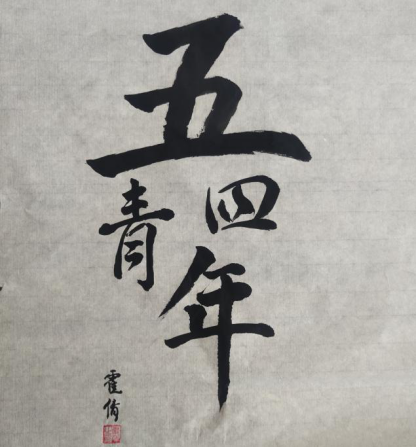 五四
青年
霍倩